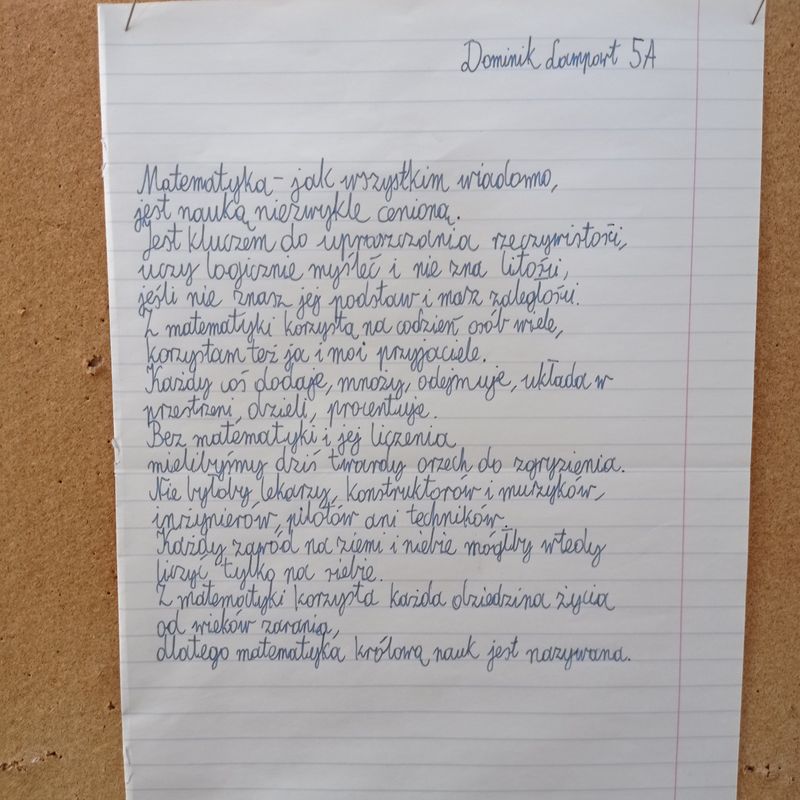 Dominik Lampart 5A
Matematyka - jak wszystkim wiadomo,
jest nauką niezwykle cenioną.
Jest kluczem do upraszczania rzeczywistości,
uczy logicznie myśleć i nie zna litości,
jeśli nie znasz jej podstaw i masz zaległości.
Z matematyki korzysta na codzień osób wiele,
korzystam też ja i moi przyjaciele.
Każdy coś dodaje, mnoży, odejmuje, układa w
przestrzeni, dzieli, procentuje.
Bez matematyki i jej liczenia
mielibyśmy dziś twardy orzech do zgryzienia.
Nie byłoby lekarzy, konstruktorów i muzyków,
inżynierów, pilotów ani techników.
Każdy zawód na ziemi i niebie mógłby wtedy
liczyć tylko na siebie.
Z matematyki korzysta każda dziedzina życia
od wieków zarania,
dlatego matematyka królową nauk jest nazywana.